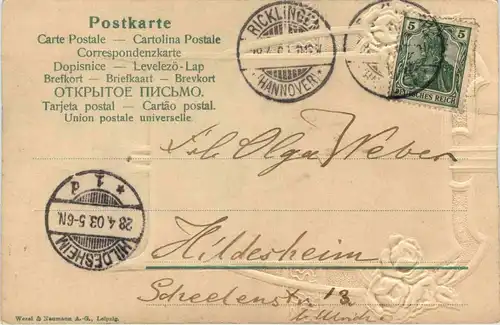 Postkarte
Carte Postale — Cartolina Postale
Correspondenzkarte
Dopisnice — Levelező-Lap
Brefkort — Briefkaart — Brevkort
ОТКРЫТОЕ ПИСЬМО.
Tarjeta postal — Cartão postal.
Union postale universelle.
RICKLINGEN
(HANNOVER)
5 5
DEUTSCHES REICH
Frl. Olga Weber
HILDESHEIM
28 4 03 5-6N.
* 1 *
d
Hildesheim
Scheelenstr. 13
Wezel & Naumann A.-G., Leipzig.